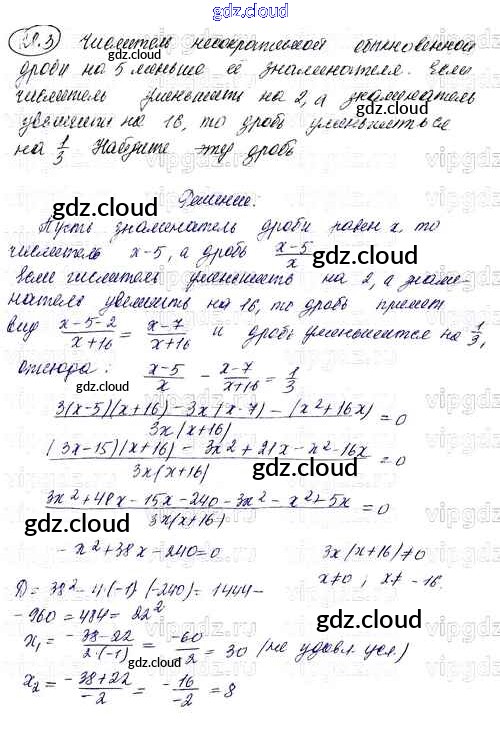 gdz.cloud
28.3 Числитель несократимой обыкновенной
дроби на 5 меньше её знаменателя. Если
числитель уменьшить на 2, а знаменатель
увеличить на 16, то дробь уменьшиться
на 1/3 Найдите эту дробь
Решение.
Пусть знаменатель дроби равен x, то
числитель x-5, а дробь (x-5)/x
Если числитель уменьшить на 2, а знаме-
натель увеличить на 16, то дробь примет
вид (x-5-2)/(x+16) = (x-7)/(x+16) и дробь уменьшится на 1/3,
отсюда: (x-5)/x - (x-7)/(x+16) = 1/3
(3(x-5)(x+16) - 3x(x-7) - (x²+16x))/(3x(x+16)) = 0
((3x-15)(x+16) - 3x²+21x-x²-16x)/(3x(x+16)) = 0
(3x²+48x-15x-240-3x²-x²+5x)/(3x(x+16)) = 0
-x²+38x-240=0 3x(x+16)≠0
x≠0; x≠-16.
D= 38²-4·(-1)·(-240)= 1444-
-960=484= 22²
x₁= (-38-22)/(2·(-1)) = (-60)/(-2) = 30 (не удовл. усл.)
x₂= (-38+22)/(-2) = (-16)/(-2) = 8